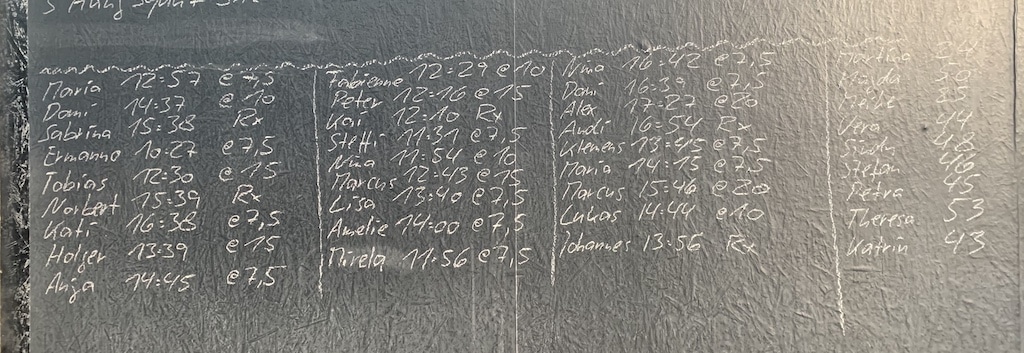 Maria 12:57 @7,5
Domi 14:37 @10
Sabrina 15:38 Rx
Ermanno 10:27 @7,5
Tobias 12:30 @15
Norbert 15:39 Rx
Kati 16:38 @7,5
Holger 13:39 @15
Anja 14:45 @7,5
Fabienne 12:29 @10
Peter 12:16 @15
Kai 12:10 Rx
Steffi 11:31 @7,5
Nina 11:54 @10
Marcus 12:43 @15
Lisa 13:40 @7,5
Amelie 14:00 @7,5
Mirela 11:56 @7,5
Nina 16:42 @7,5
Domi 16:39 @7,5
Alex 17:27 @20
Andi 16:54 Rx
Klemens 13:45 @7,5
Maria 14:13 @7,5
Marcus 15:46 @20
Lukas 14:44 @10
Johannes 13:56 Rx
Martina
Vera 44
48
Stefan
Petra 45
Theresa 53
Katrin 43